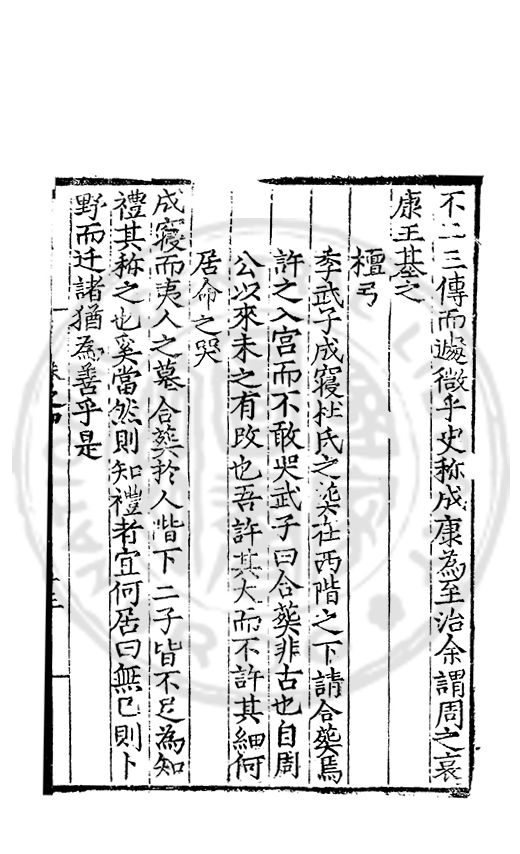 不二三傳而遽微乎史称成康為至治余謂周之衰
康王基之
檀弓
季武子成寢杜氏之葬在西階之下請合葬焉
許之入宮而不敢哭武子曰合葬非古也自周
公以來未之有改也吾許其大而不許其細何
居命之哭
成寢而夷人之墓合葬於人堦下二子皆不足為知
禮其称之也奚當然則知禮者宜何居曰無已則卜
野而迁諸猶為善乎是